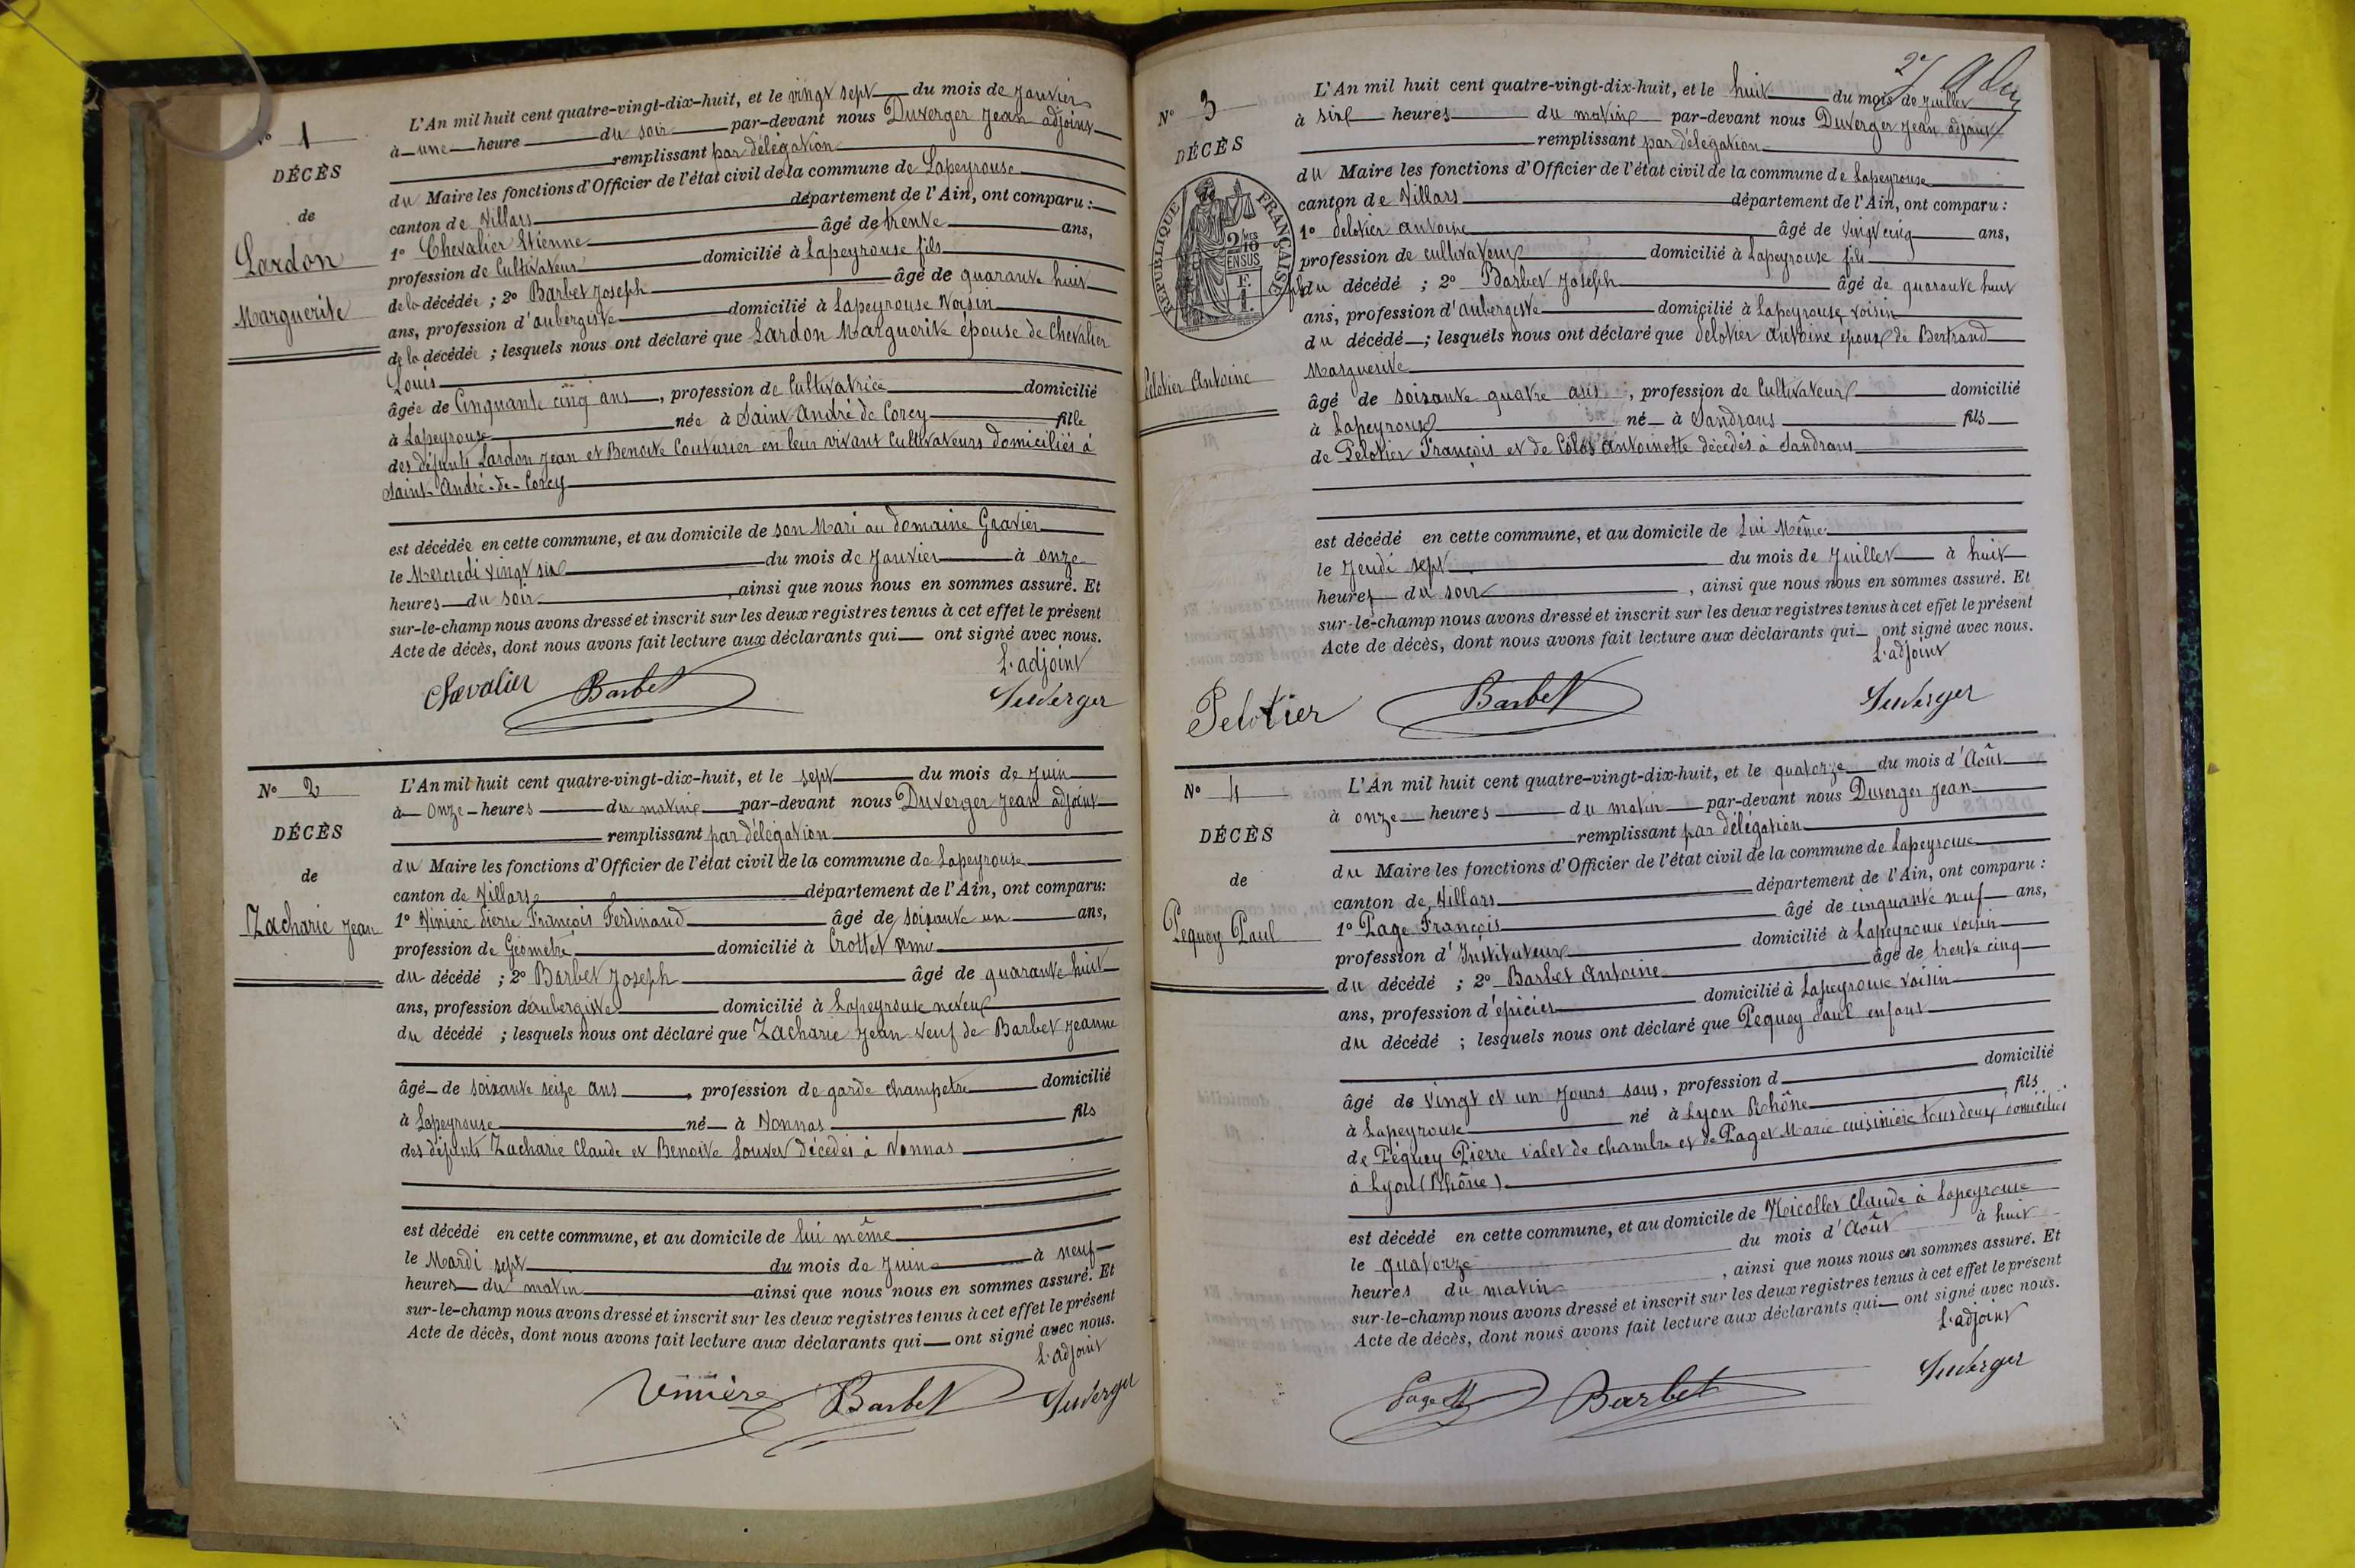 N° 1
DÉCÈS
de
Lardon
Marguerite
L'An mil huit cent quatre-vingt-dix-huit, et le vingt sept du mois de Janvier
à une heure du soir par-devant nous Duverger Jean adjoint
remplissant par délégation
du Maire les fonctions d'Officier de l'état civil de la commune de Lapeyrouse
canton de Villars département de l'Ain, ont comparu :
1° Chevalier Etienne âgé de trente ans,
profession de Cultivateur domicilié à Lapeyrouse fils
de la décédée ; 2° Barbet Joseph âgé de quarante huit
ans, profession d'aubergiste domicilié à Lapeyrouse Voisin
de la décédée ; lesquels nous ont déclaré que Lardon Marguerite épouse de Chevalier
Louis
âgée de Cinquante cinq ans, profession de Cultivatrice domicilié
à Lapeyrouse née à Saint-André de Corcy fille
des défunts Lardon Jean et Benoite Couturier en leur vivant Cultivateurs domiciliés à
Saint-André-de-Corcy
est décédée en cette commune, et au domicile de son Mari au domaine Gravier
le Mercredi vingt six du mois de Janvier à onze
heures du soir, ainsi que nous nous en sommes assuré. Et
sur-le-champ nous avons dressé et inscrit sur les deux registres tenus à cet effet le présent
Acte de décès, dont nous avons fait lecture aux déclarants qui ont signé avec nous.
L'adjoint
Chevalier Barbet Duverger
N° 2
DÉCÈS
de
Zacharie Jean
L'An mil huit cent quatre-vingt-dix-huit, et le sept du mois de Juin
à onze heures du matin par-devant nous Duverger Jean adjoint
remplissant par délégation
du Maire les fonctions d'Officier de l'état civil de la commune de Lapeyrouse
canton de Villars département de l'Ain, ont comparu :
1° Vinière Pierre François Ferdinand âgé de soixante un ans,
profession de Géomètre domicilié à Crottet ami
du décédé ; 2° Barbet Joseph âgé de quarante huit
ans, profession d'aubergiste domicilié à Lapeyrouse neveu
du décédé ; lesquels nous ont déclaré que Zacharie Jean veuf de Barbet Jeanne
âgé de soixante seize ans, profession de garde champetre domicilié
à Lapeyrouse né à Vonnas fils
des défunts Zacharie Claude et Benoite Louvet décédés à Vonnas
est décédé en cette commune, et au domicile de lui même
le Mardi sept du mois de Juin à neuf
heures du matin ainsi que nous nous en sommes assuré. Et
sur-le-champ nous avons dressé et inscrit sur les deux registres tenus à cet effet le présent
Acte de décès, dont nous avons fait lecture aux déclarants qui ont signé avec nous.
L'adjoint
Vinière Barbet Duverger
N° 3
DÉCÈS
RÉPUBLIQUE FRANÇAISE
2/10 MES
EN SUS
F.
1.
Pelotier Antoine
L'An mil huit cent quatre-vingt-dix-huit, et le huit du mois de Juillet
à six heures du matin par-devant nous Duverger Jean adjoint
remplissant par délégation
du Maire les fonctions d'Officier de l'état civil de la commune de Lapeyrouse
canton de Villars département de l'Ain, ont comparu :
1° Pelotier Antoine âgé de vingt cinq ans,
profession de cultivateur domicilié à Lapeyrouse fils
du décédé ; 2° Barbet Joseph âgé de quarante huit
ans, profession d'aubergiste domicilié à Lapeyrouse voisin
du décédé ; lesquels nous ont déclaré que Pelotier Antoine époux de Bertrand
Marguerite
âgé de soixante quatre ans, profession de Cultivateur domicilié
à Lapeyrouse né à Sandrans fils
de Pelotier François et de Colas Antoinette décédés à Sandrans
est décédé en cette commune, et au domicile de Lui Même
le Jeudi sept du mois de Juillet à huit
heures du soir, ainsi que nous nous en sommes assuré. Et
sur-le-champ nous avons dressé et inscrit sur les deux registres tenus à cet effet le présent
Acte de décès, dont nous avons fait lecture aux déclarants qui ont signé avec nous.
L'adjoint
Pelotier Barbet Duverger
N° 4
DÉCÈS
de
Pequey Paul
L'An mil huit cent quatre-vingt-dix-huit, et le quatorze du mois d'Août
à onze heures du matin par-devant nous Duverger Jean
remplissant par délégation
du Maire les fonctions d'Officier de l'état civil de la commune de Lapeyrouse
canton de Villars département de l'Ain, ont comparu :
1° Page François âgé de cinquante neuf ans,
profession d'Instituteur domicilié à Lapeyrouse voisin
du décédé ; 2° Barbet Antoine âgé de trente cinq
ans, profession d'épicier domicilié à Lapeyrouse voisin
du décédé ; lesquels nous ont déclaré que Pequey Paul enfant
âgé de vingt et un jours sans, profession d domicilié
à Lapeyrouse né à Lyon Rhône fils
de Péquey Pierre valet de chambre et de Paget Marie cuisinière tous deux domiciliés
à Lyon (Rhône)
est décédé en cette commune, et au domicile de Nicollet Claude à Lapeyrouse
le quatorze du mois d'Août à huit
heures du matin, ainsi que nous nous en sommes assuré. Et
sur-le-champ nous avons dressé et inscrit sur les deux registres tenus à cet effet le présent
Acte de décès, dont nous avons fait lecture aux déclarants qui ont signé avec nous.
L'adjoint
Page Barbet Duverger